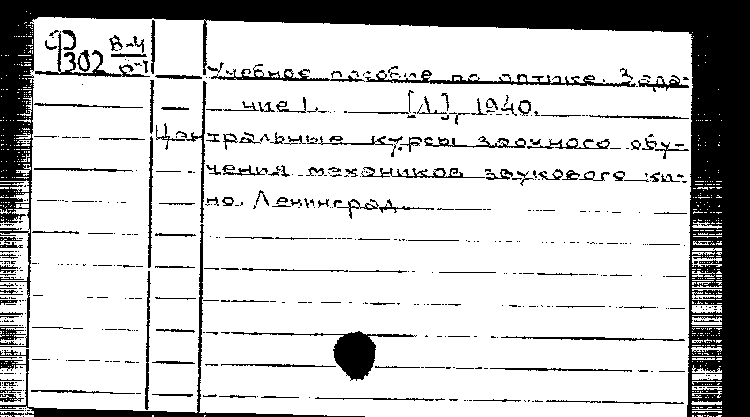 Ф302 В-4/6-1
Учебное пособие по оптике. Зада-
ние 1. [Л.], 1940.
Центральные курсы заочного обу-
чения механиков звукового ки-
но. Ленинград.